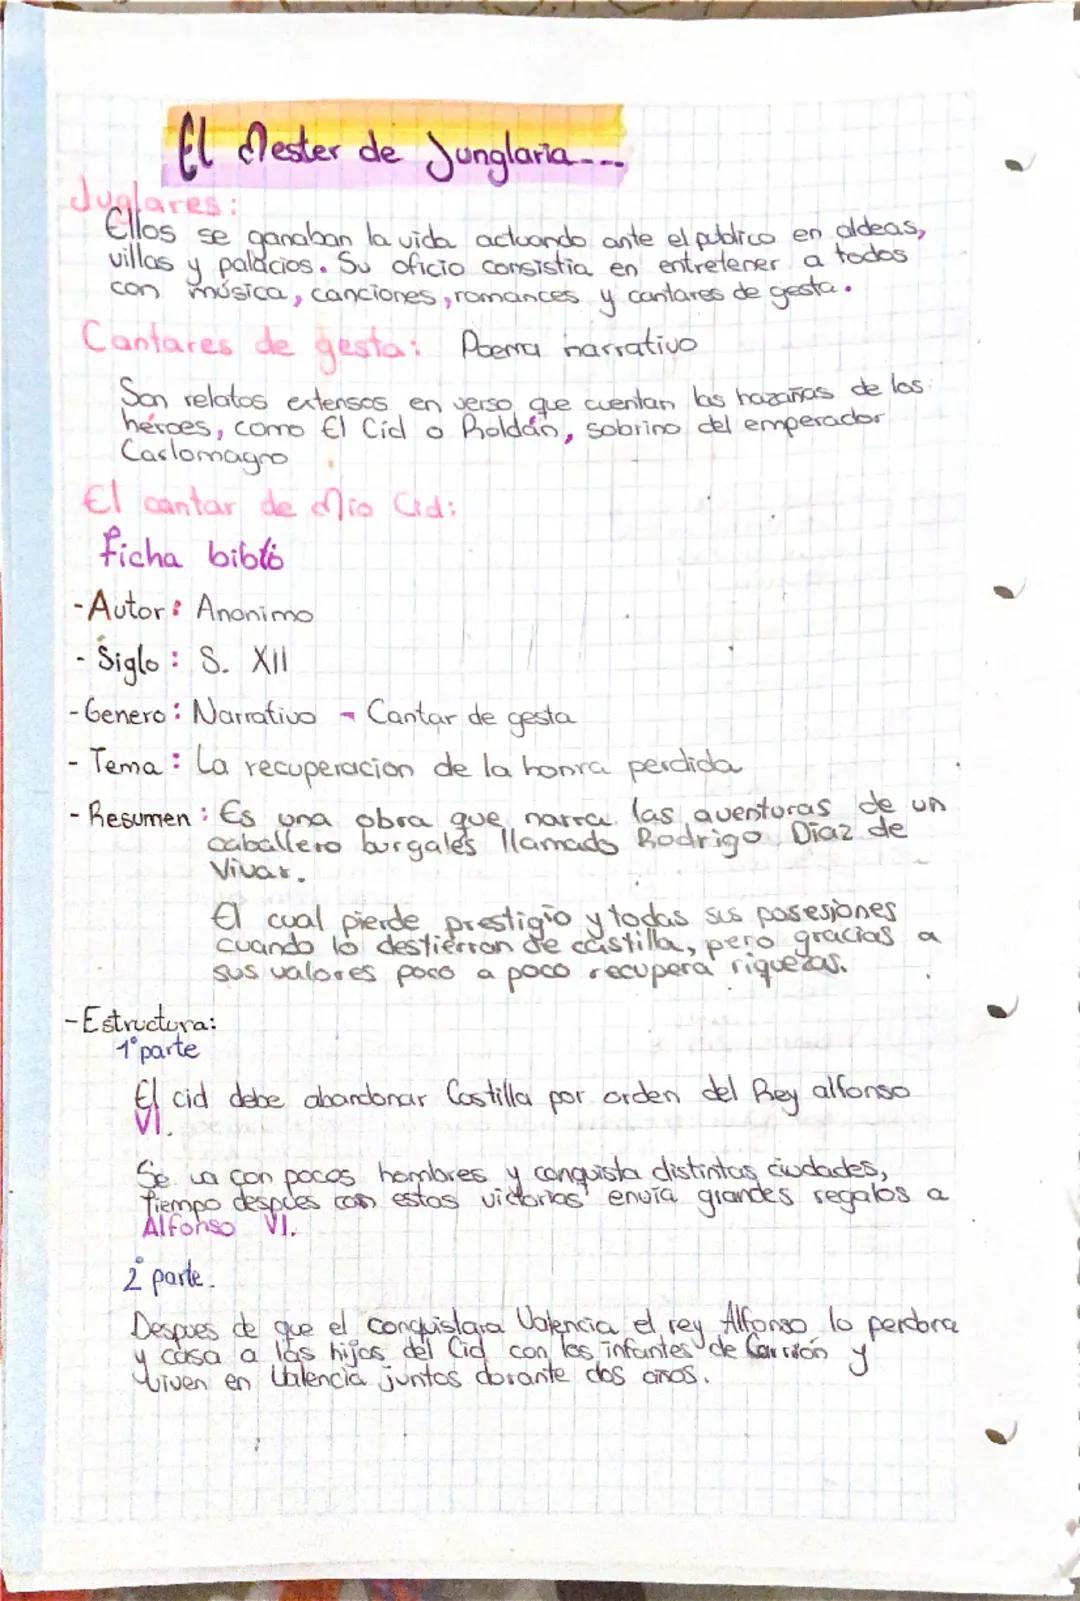 El Mester de Junglaria---
Juglares:
Ellos se ganaban la vida actuando ante el publico en aldeas,
villas y palacios. Su oficio consistia en entretener a todos
con música, canciones, romances y cantares de gesta.
Cantares de gesta: Poema narrativo
Son relatos extensos en verso que cuentan las hazañas de los
héroes, como El Cid o Roldán, sobrino del emperador
Carlomagno
El cantar de Mio Cid:
ficha biblio
-Autor: Anonimo
- Siglo: S. XII
-Genero: Narrativo - Cantar de gesta
- Tema: La recuperacion de la honra perdida
- Resumen: Es una obra que narra las aventuras de un
caballero burgales llamado Rodrigo Diaz de
Vivar.
El cual pierde prestigio y todas sus posesiones
cuando lo destierran de castilla, pero gracias a
sus valores poco a poco recupera riquezas.
-Estructura:
1º parte
El cid debe abandonar Castilla por orden del Rey alfonso
VI.
Se va con pocos hombres y conquista distintas ciudades,
tiempo despues con estas victorias envia grandes regalos a
Alfonso VI.
2º parte.
Despues de que el conquistara Valencia el rey Alfonso lo perdona
y casa a las hijas del Cid con los infantes de Carrión y
viven en Valencia juntos durante dos años.